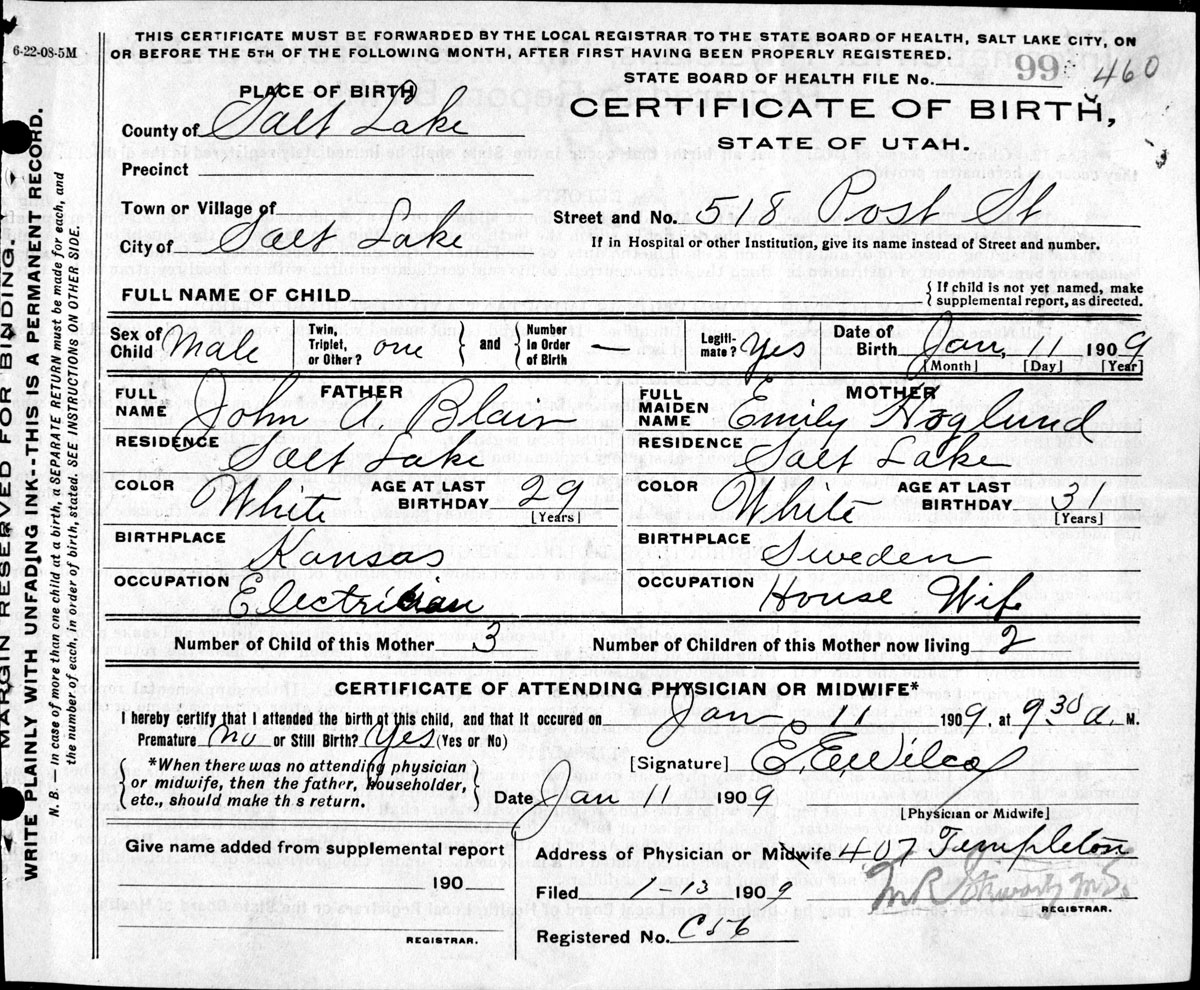 6-22-08-5M
THIS CERTIFICATE MUST BE FORWARDED BY THE LOCAL REGISTRAR TO THE STATE BOARD OF HEALTH, SALT LAKE CITY, ON
OR BEFORE THE 5TH OF THE FOLLOWING MONTH, AFTER FIRST HAVING BEEN PROPERLY REGISTERED.
STATE BOARD OF HEALTH FILE No. 99 460
PLACE OF BIRTH
CERTIFICATE OF BIRTH,
STATE OF UTAH.
County of Salt Lake
Precinct
Town or Village of
Street and No. 518 Post St
City of Salt Lake
If in Hospital or other Institution, give its name instead of Street and number.
FULL NAME OF CHILD
{ If child is not yet named, make
supplemental report, as directed.
Sex of Child Male
Twin, Triplet, or Other? one } and { Number In Order of Birth —
Legiti-mate? Yes
Date of Birth Jan, 11 1909
[Month] [Day] [Year]
FATHER
FULL NAME John A. Blair
RESIDENCE Salt Lake
COLOR White AGE AT LAST BIRTHDAY 29
[Years]
BIRTHPLACE Kansas
OCCUPATION Electrician
MOTHER
FULL MAIDEN NAME Emily Hoglund
RESIDENCE Salt Lake
COLOR White AGE AT LAST BIRTHDAY 3
[Years]
BIRTHPLACE Sweden
OCCUPATION House Wife
Number of Child of this Mother 3 Number of Children of this Mother now living 2
CERTIFICATE OF ATTENDING PHYSICIAN OR MIDWIFE*
I hereby certify that I attended the birth of this child, and that it occured on Jan, 11 1909, at 9 30 a. M.
Premature no or Still Birth? Yes (Yes or No)
*When there was no attending physician
or midwife, then the father, householder,
etc., should make th s return.
[Signature] E. E. Wilcox
Date Jan 11 1909
[Physician or Midwife]
Give name added from supplemental report
190
REGISTRAR.
Address of Physician or Midwife 407 Templeton
Filed 1-13 1909
M.D.
REGISTRAR.
Registered No. C56
MARGIN RESERVED FOR BINDING.
WRITE PLAINLY WITH UNFADING INK--THIS IS A PERMANENT RECORD.
N. B. In case of more than one child at a birth, a SEPARATE RETURN must be made for each, and
the number of each, in order of birth, stated. SEE INSTRUCTIONS ON OTHER SIDE.